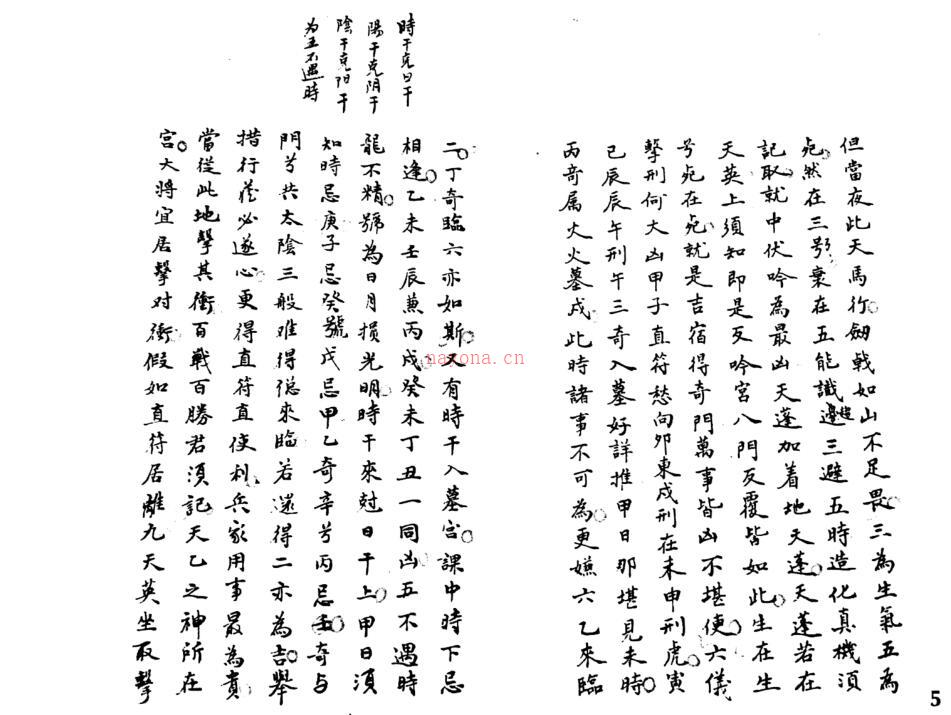 但當夜此天馬行。劒戟如山不足畏。三為生氣五為
死。然在三兮衰在五能識三避五時造化真機須
記取就中伏吟為最凶天蓬加着地天蓬。天蓬若在
天英上須知即是反吟宮八門反覆皆如此。生在生
兮死在死。就是吉宿得奇門萬事皆凶不堪使。六儀
擊刑何大凶甲子直符愁向夘東戌刑在未申刑虎。寅
巳辰辰午刑午三奇入墓好詳推甲日那堪見未時。
丙奇属火火墓戌。此時諸事不可為。更嫌六乙來臨
時干克日干
陽干克阴干
陰干克阳干
为五不遇時
二。丁奇臨六亦如斯。又有時干入墓宮。課中時下忌
相逢。乙未壬辰兼丙戌。癸未丁丑一同凶。五不遇時
龍不精。號為日月損光明。時干來尅日干上。甲日須
知時忌庚子忌癸號戊忌甲乙奇辛兮丙忌壬。奇与
門兮共太陰三般难得總來臨若還得二亦為吉。舉
措行藏必遂心。更得直符直使利。兵家用事最為貴
當從此地擊其衝。百戰百勝君須記。天乙之神所在
宮。大將宜居擊对衝。假如直符居離九天英坐取擊
5
nayona.cn